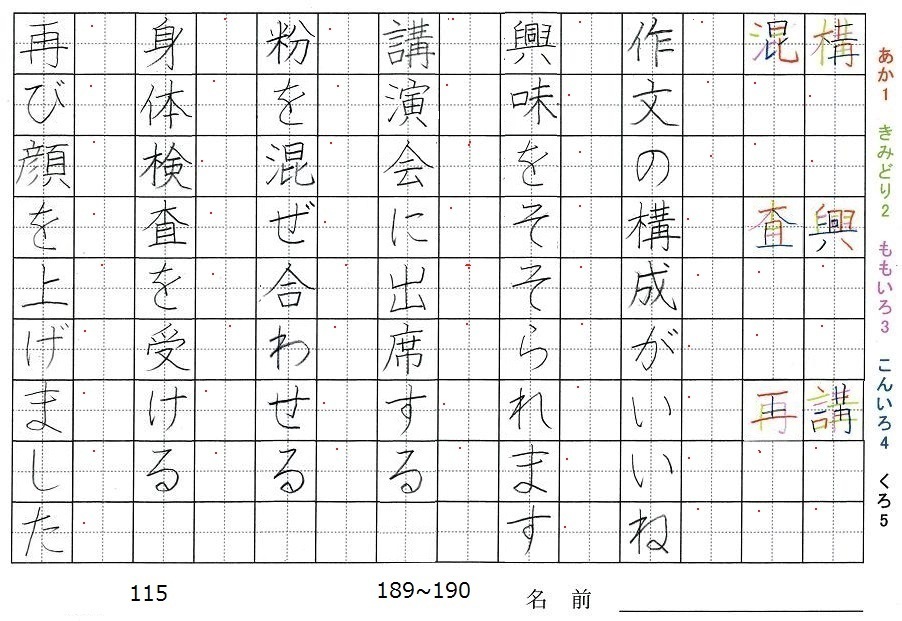 あか1 きみどり2 ももいろ3 こんいろ4 くろ5
構 興 講
混 査 再
作文の構成がいいね
興味をそそられます
講演会に出席する
粉を混ぜ合わせる
身体検査を受ける
再び顔を上げました
115
189~190
名前